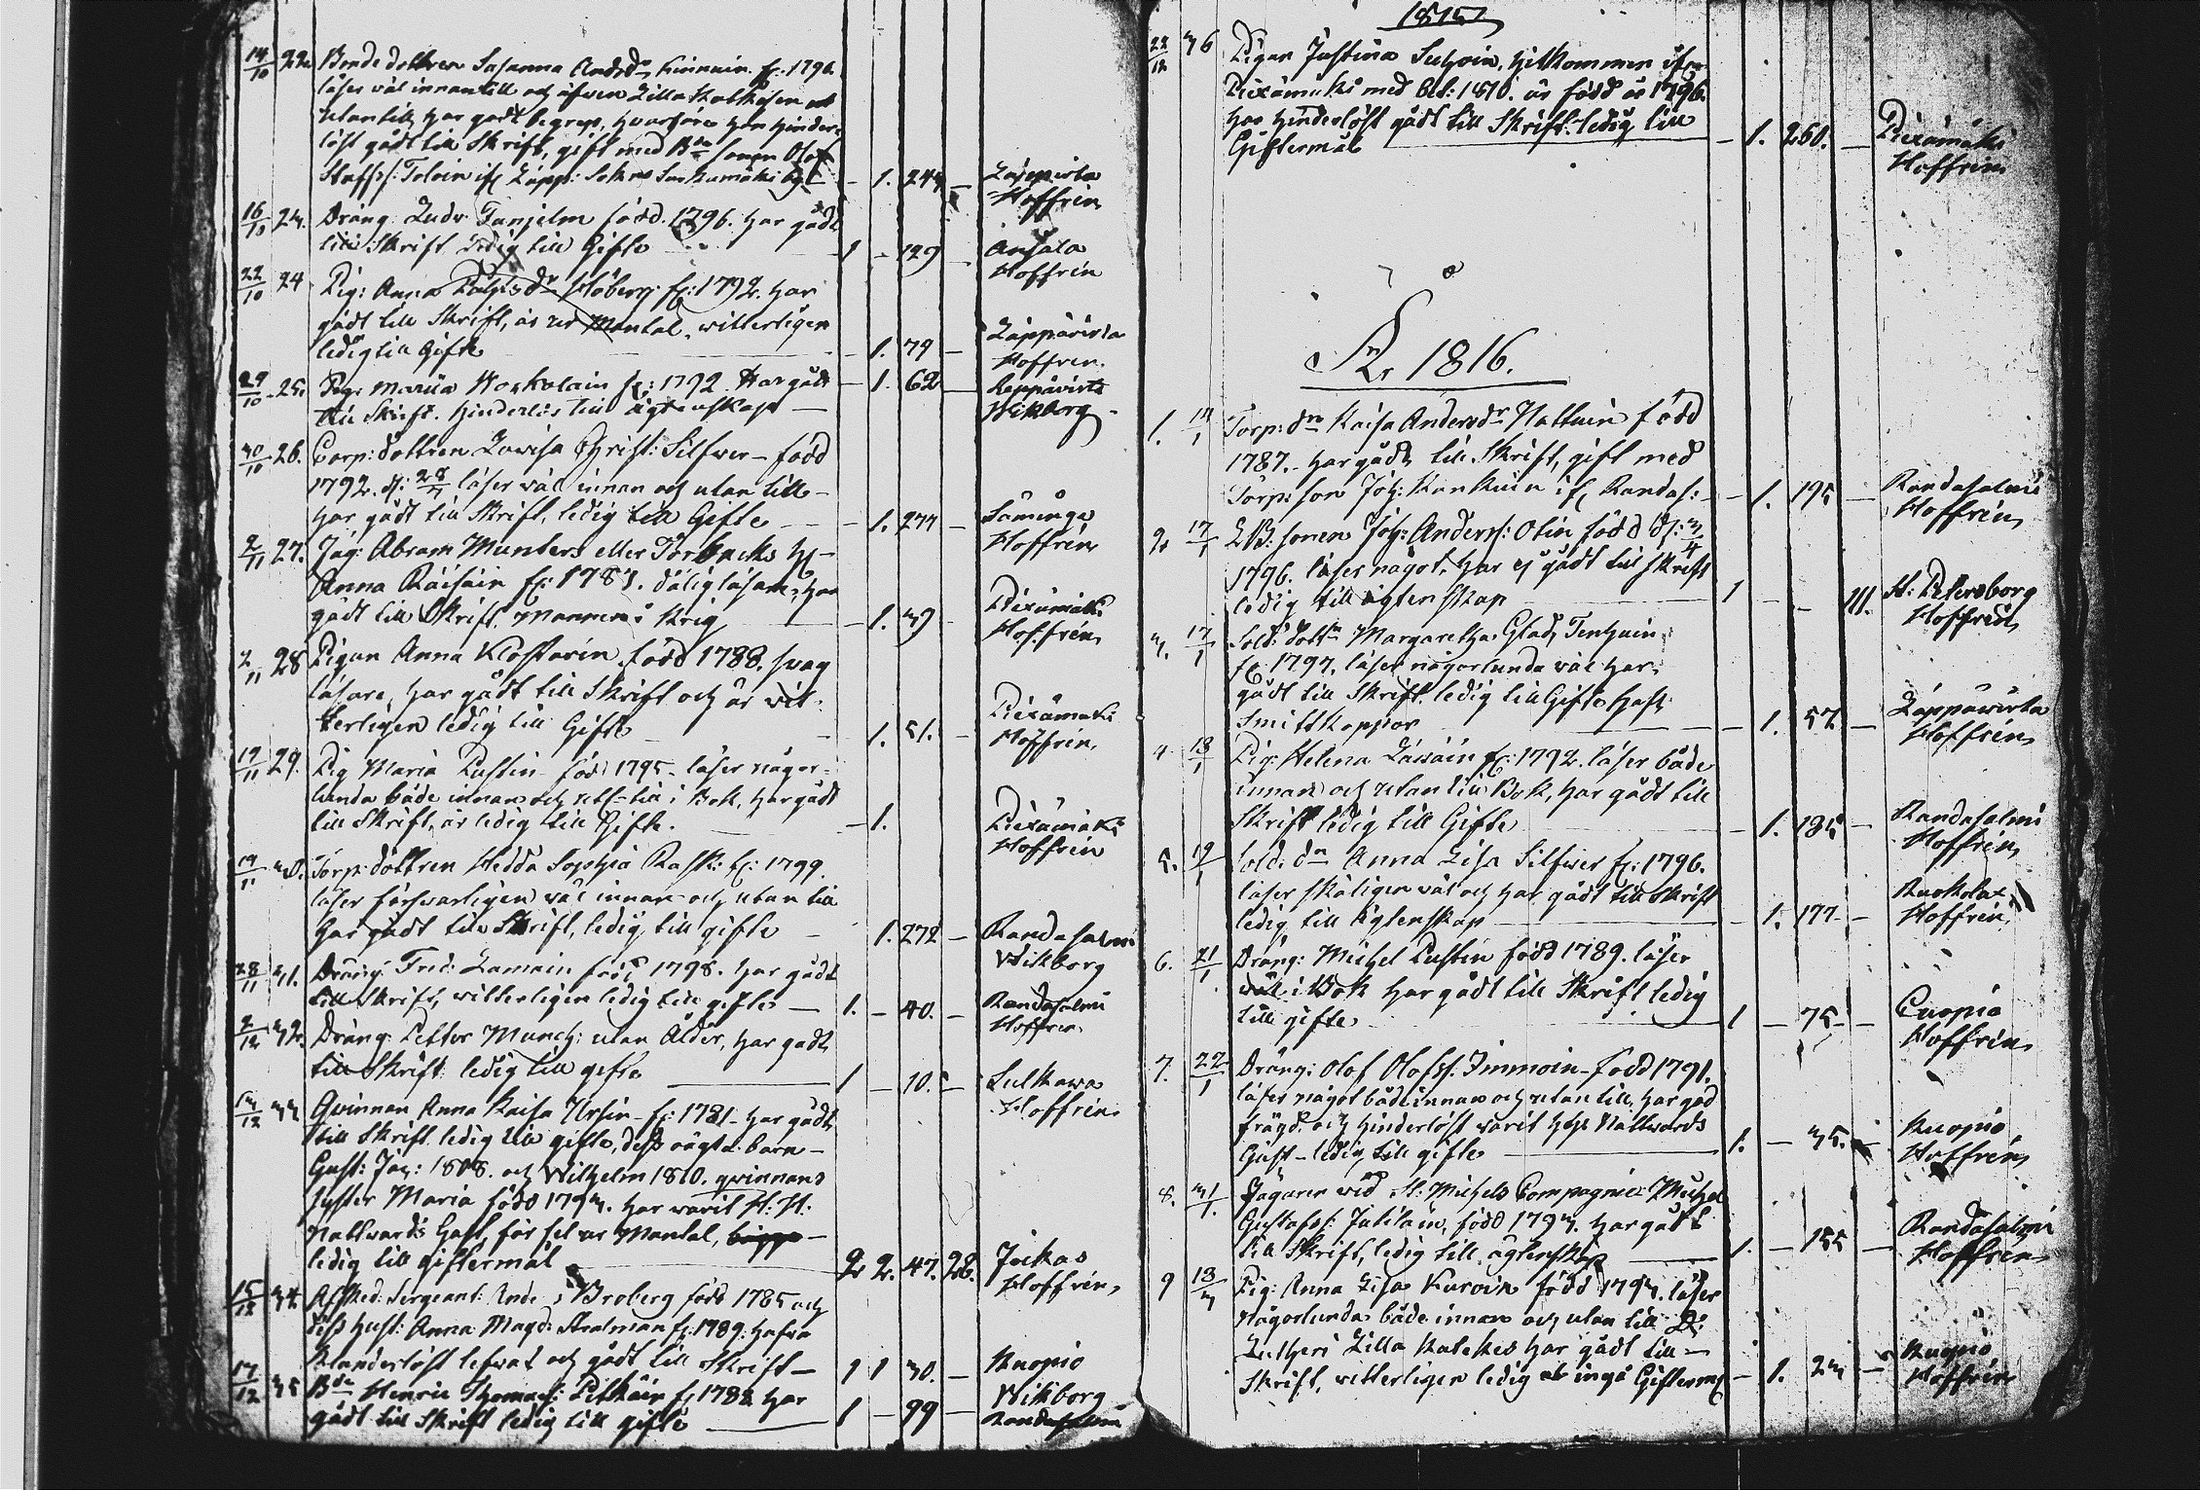 14/10 22 Bonde dottren Susanna Andsdr Kinnuin. f: 1796.
läser väl innantill och äfwen Lilla Katkesen
utantill, har godt begrep, hvarföre hon hinder-
löst gådt till Skrift, gift med Bde sonen Olof
Staffss: Toloin if Läpp: Sokn 1. 244 Läppwirta Hoffrén
16/10 23. Dräng Ludv: Tanjelm född. 1796. har gådt
till Skrift ledig till Gifte 1 - 129 - Ansala Hoffrén
22/10 24 Pig: Anna Sjöberg f: 1792. har
gådt till Skrift, är ur Mantal, witterligen
ledig till Gifte 1. 79 - Läppävirta Hoffren.
29/10 25. Pig: Maria Hoskolain f: 1792. Har gådt 1. 62 Leppävirta
till Skrift. Hinderlös till ägtenskap Wikborg.
30/10 26. Corp: dottren Lovisa Christ: Silfwer - född
1792. d: 28/7 läser väl innan och utan till -
har gådt till Skrift, ledig till Gifte 1. 277 - Säminge Hoffrén
2/11 27. Jäg: Abram Munters eller Torbacks H-
Anna Räisäin f: 1783. dålig läsare, har
gådt till Skrift, mannen i Krig 1. 39 - Piexämäki Hoffrén
2/11 28 Pigan Anna Klostarin född 1788. swag
läsare, har gådt till Skrift och är wit-
terligen ledig till Gifte 1. 51. - Piexämäki Hoffrén
17/11 29. Pig Maria Pustin född 1795. läser någor-
lunda både innan och utan till i Bok, har gådt
till Skrift, är ledig till Gifte. 1. Piexämäki Hoffrén
19/11 30. Torp: dottren Hedda Sophia Rask: f: 1799.
läser försvarligen väl innan och utan till
har gådt till Skrift, ledig till gifte 1. 272 - Randasalmi Wikborg
28/11 31. Dräng: Fred: Lamain född 1798. har gådt
till Skrift, witterligen ledig till gifte 1. - 40. - Randasalmi Hoffren
2/12 32. Dräng: Petter Munck: utan Ålder, har gådt
till Skrift ledig till gifte 1 - 10. - Sulkawa Hoffrén
13/12 33 Qvinnan Anna Kaisa Ursin f: 1781 har gådt
till Skrift ledig till gifte, dess oägta barn -
Gust: Joh: 1808. och Wilhelm 1810. qvinnans
syster Maria född 1793. har warit H: H:
Nattwards Gäst, för sel ur Mantal, -
ledig till giftermål 2 2. 47. 28. Jockas Hoffrén
15/12 34 Afsked: Sergeant: Ande Broberg född 1785 och
dess hust: Anna Magd: Stralman f: 1789. hafva
Klanderlöst lefwat och gådt till Skrift - 1 1 30. - Kuopio
17/12 35 Bde Henric Thomas: Pitkäin f. 1788 har Wikborg
gådt till Skrift ledig till gifte 1 - 99 - Randasalmi
1815
22/12 36 Pigan Justina Suhoin, hitkommen ifrn
Piexämäki med bet: 1810. är född år 1796.
har hinderlöst gådt till Skrift, ledig till
Giftermål 1. 260. - Piexämäki Hoffrén
År 1816.
1. 14/1 Torp: drn Kaisa Andersdr Hattuin född
1787. har gådt till Skrift, gift med
Torp: son Joh: Kankuin if Randas: 1. 195 - Randasalmi Hoffrén
2. 17/1 LB: sonen Joh: Anderss: Otin född d: 3/4
1796. läser något, har ej gådt till Skrift
ledig till ägtenskap 1 - - 111. St: Petersborg Hoffrén
3. 17/1 Sold: dottr Margaretha Glad Tenhuin
f: 1797. läser någorlunda väl har
gådt till Skrift ledig till Gifte haft
Smittkoppor 1. 57 - Läppäwirta Hoffrén
4 18/1 Pig: Helena f: 1792. läser både
innan och utan till i Bok, har gådt till
Skrift ledig till Gifte 1. 185 - Randasalmi Hoffrén
5. 19/1 Sold: drn Anna Lisa Silfwer f: 1796.
läser skäligen väl och har gådt till Skrift
ledig till ägtenskap 1. 177 - Ruokolax Hoffrén
6. 21/1 Dräng: Michel Pustin född 1789. läser
väl i Bok har gådt till Skrift ledig
till gifte 1 - 75 - Cuopio Hoffrén
7. 22/1 Dräng: Olof Olofss: Immoin född 1791.
läser något både innan och utan till, har god
frägd och hinderlöst warit HH: Nattwards
Gäst - ledig till gifte 1. - 35. Kuopio Hoffrén
8. 31/1. Jägaren wid St: Michels Compagnie Michel
Gustafss: Jutiläin, född 1793. har gådt
till Skrift, ledig till ägtenskap 1. - 155 - Randasalmi Hoffrén
9 13/3 Pig: Anna Lisa Kuroin född 1793. läser
någorlunda både innan och utan till D:
Lutheri Lilla Katekes har gådt till -
Skrift, witterligen ledig at ingå Gifterm 1. 23 - Kuopio Hoffrén